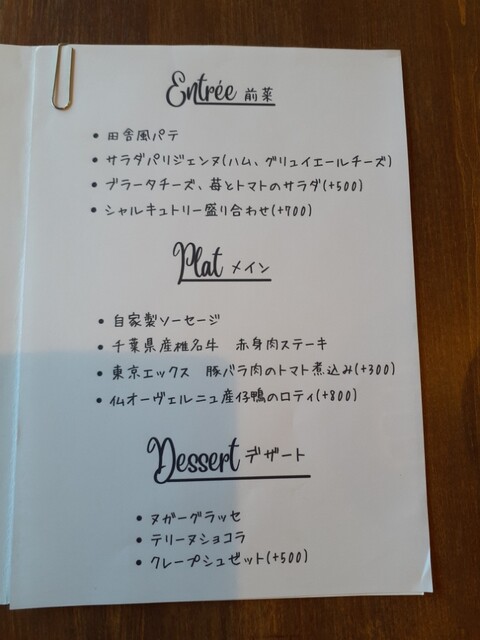 Entrée 前菜
• 田舎風パテ
• サラダパリジェンヌ(ハム、グリュイエールチーズ)
• ブラータチーズ、苺とトマトのサラダ(+500)
• シャルキュトリー盛り合わせ(+700)
Plat メイン
• 自家製ソーセージ
• 千葉県産椎名牛 赤身肉ステーキ
• 東京エックス 豚バラ肉のトマト煮込み(+300)
• 仏オーヴェルニュ産仔鴨のロティ(+800)
Dessert デザート
• ヌガーグラッセ
• テリーヌショコラ
• クレープシュゼット(+500)